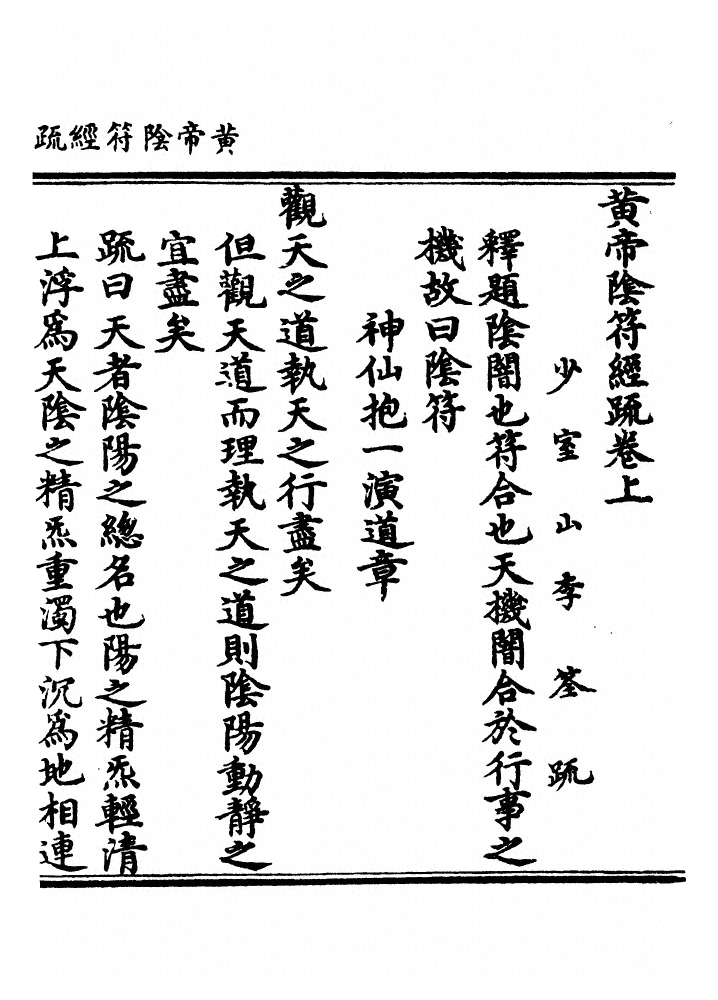 黃帝陰符經疏
黃帝陰符經疏卷上
少室山李筌疏
釋題陰闇也符合也天機闇合於行事之
機故曰陰符
神仙抱一演道章
觀天之道執天之行盡矣
但觀天道而理執天之道則陰陽動靜之
宜盡矣
疏曰天者陰陽之總名也陽之精炁輕清
上浮為天陰之精炁重濁下沉為地相連